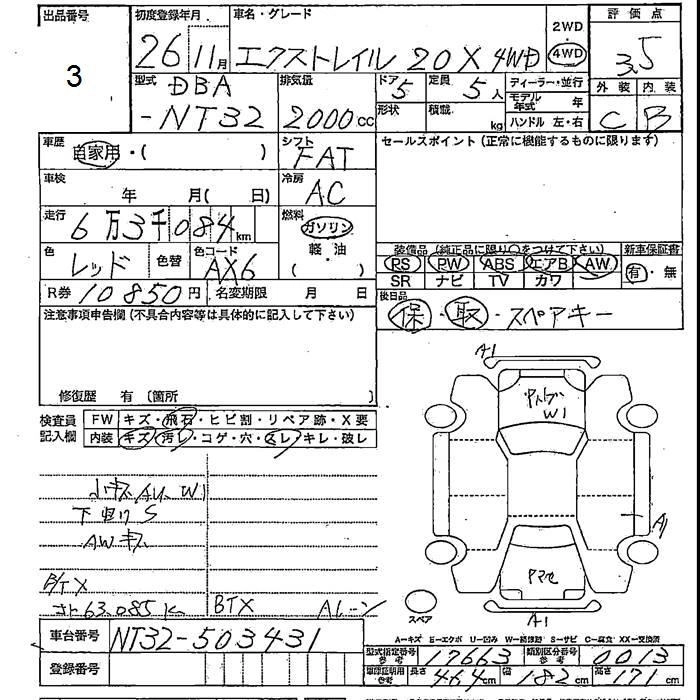 出品番号 初度登録年月 車名・グレード 2WD 評価点
3 26 11月 エクストレイル 20X 4WD ・ 4WD 3.5
型式 DBA 排気量 ドア 5 定員 5人 ディーラー・並行 外装 内装
-NT32 2000cc 形状 積載 kg モデル年式 年 C B
ハンドル 左・右
車歴 自家用・( ) シフト FAT セールスポイント (正常に機能するものに限ります)
車検 年 月( 日) 冷房 AC
走行 6万3千084km 燃料 ガソリン
軽油
( )
色 レッド 色替 色コード AX6 装備品 (純正品に限り○をつけて下さい) 新車保証書
PS PW ABS エアB AW 有・無
SR ナビ TV カワ
R券 10850円 名変期限 月 日 後日品
保・取・スペアキー
注意事項申告欄 (不具合内容等は具体的に記入して下さい)
A1
W1
修復歴 有 〔箇所 〕
検査員 FW キズ・飛石・ヒビ割・リペア跡・X要
記入欄 内装 キズ・汚レ・コゲ・穴・スレ・キレ・破レ
小キズ AU、W1
S
AWキズ
A1
B/T X
63,085K BTX
スペア A1
A-キズ E-エクボ U-凹み W-補修跡 S-サビ C-腐食 XX-交換済
車台番号 NT32-503431 型式指定番号 参考 17663 類別区分番号 参考 0013
登録番号 長さ 464cm 幅 182cm 高さ 171cm